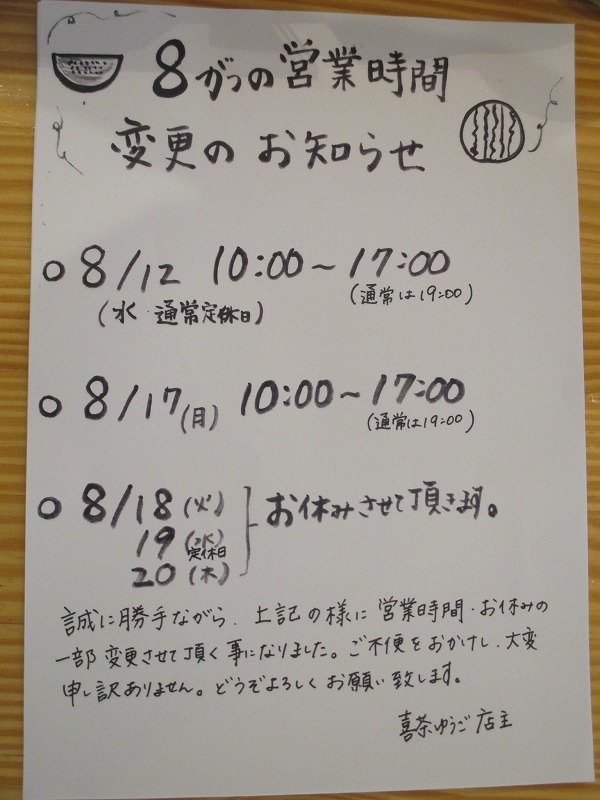 8がつの営業時間
変更のお知らせ
○ 8/12 10:00～17:00
(水 通常定休日) (通常は19:00)
○ 8/17(月) 10:00～17:00
(通常は19:00)
○ 8/18(火) お休みさせて頂きます。
19(水)
定休日
20(木)
誠に勝手ながら、上記の様に営業時間・お休みの
一部変更させて頂く事になりました。ご不便をおかけし、大変
申し訳ありません。どうぞよろしくお願い致します。
喜茶ゆうご 店主